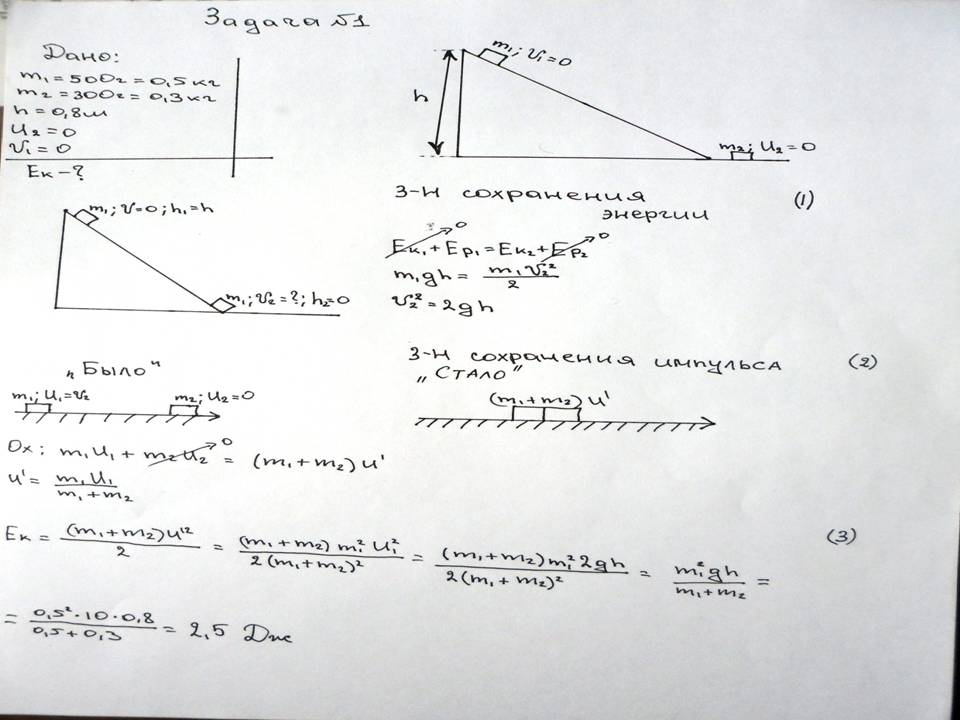 Задача №1
Дано:
m₁ = 500г = 0,5 кг
m₂ = 300г = 0,3 кг
h = 0,8 м
u₂ = 0
v₁ = 0
Ек – ?
m₁; v₁ = 0
h
m₂; u₂ = 0
m₁; v = 0; h₁ = h
m₁; v₂ = ?; h₂ = 0
З-Н сохранения энергии (1)
Ек₁ + Ер₁ = Ек₂ + Ер₂
0 0
m₁gh = m₁v₂²/2
v₂² = 2gh
З-Н сохранения импульса (2)
„Было“
m₁; u₁ = v₂ m₂; u₂ = 0
„Стало“
(m₁ + m₂) u'
Ox: m₁u₁ + m₂u₂ = (m₁ + m₂) u'
0
u' = m₁u₁/m₁ + m₂
Ек = (m₁ + m₂)u'²/2 = (m₁ + m₂) m₁² u₁²/2(m₁ + m₂)² = (m₁ + m₂) m₁² 2gh/2(m₁ + m₂)² = m₁² gh/m₁ + m₂ = (3)
= 0,5² · 10 · 0,8/0,5 + 0,3 = 2,5 Дж